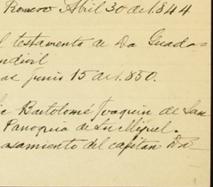 Romero Abril 30 de 1844
l testamento de Da Guada-
ndivil
as junio 15 de 1.850.
ie Bartolomé Joaquin de San
Panoquia de Sn Miguel.
asamiento del capitan Dn